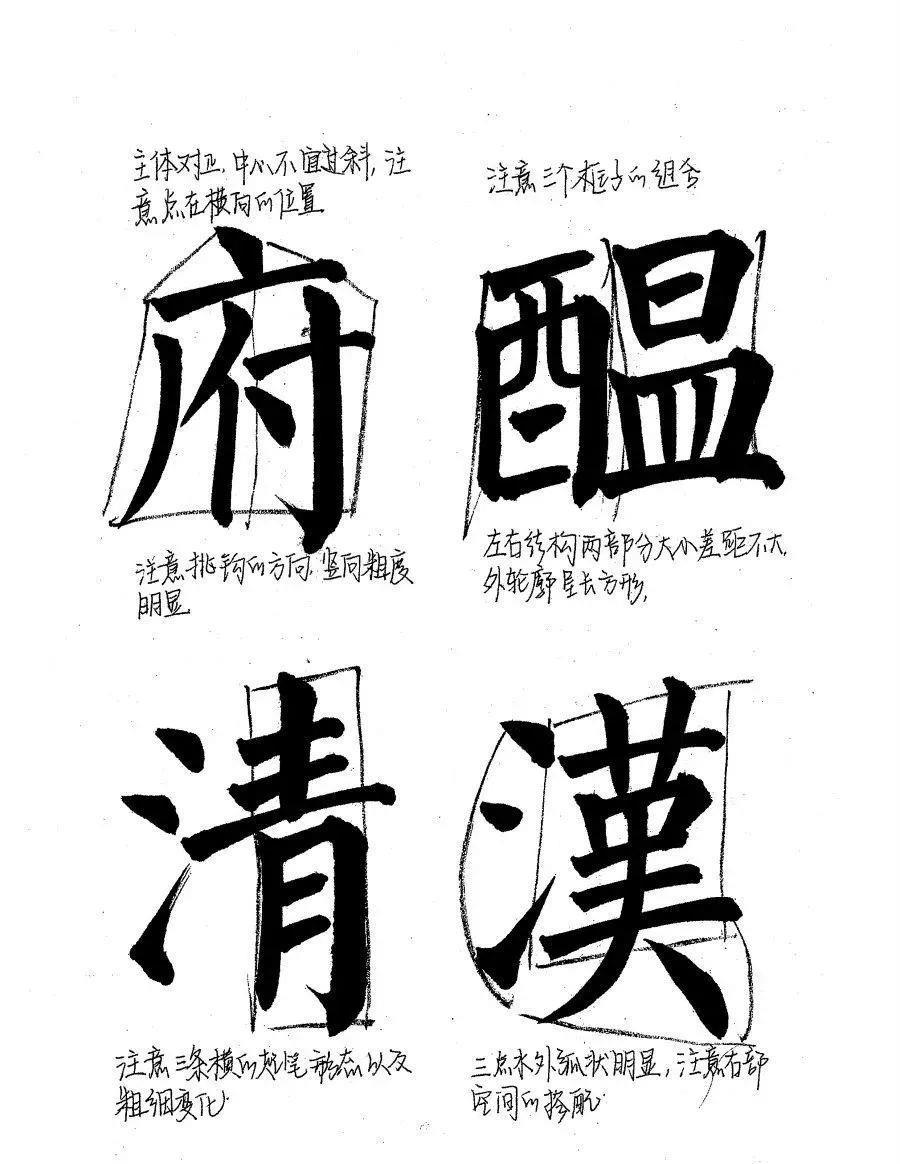 主体对正.中心不宜过斜,注
意点在横向的位置
府
注意挑钩的方向.竖向粗度
明显
注意三个框子的组合
醖
左右结构两部分大小差距不大.
外轮廓呈长方形.
清
注意三条横的起笔形态以及
粗细变化.
漢
三点水外弧状明显,注意右部
空间的搭配.